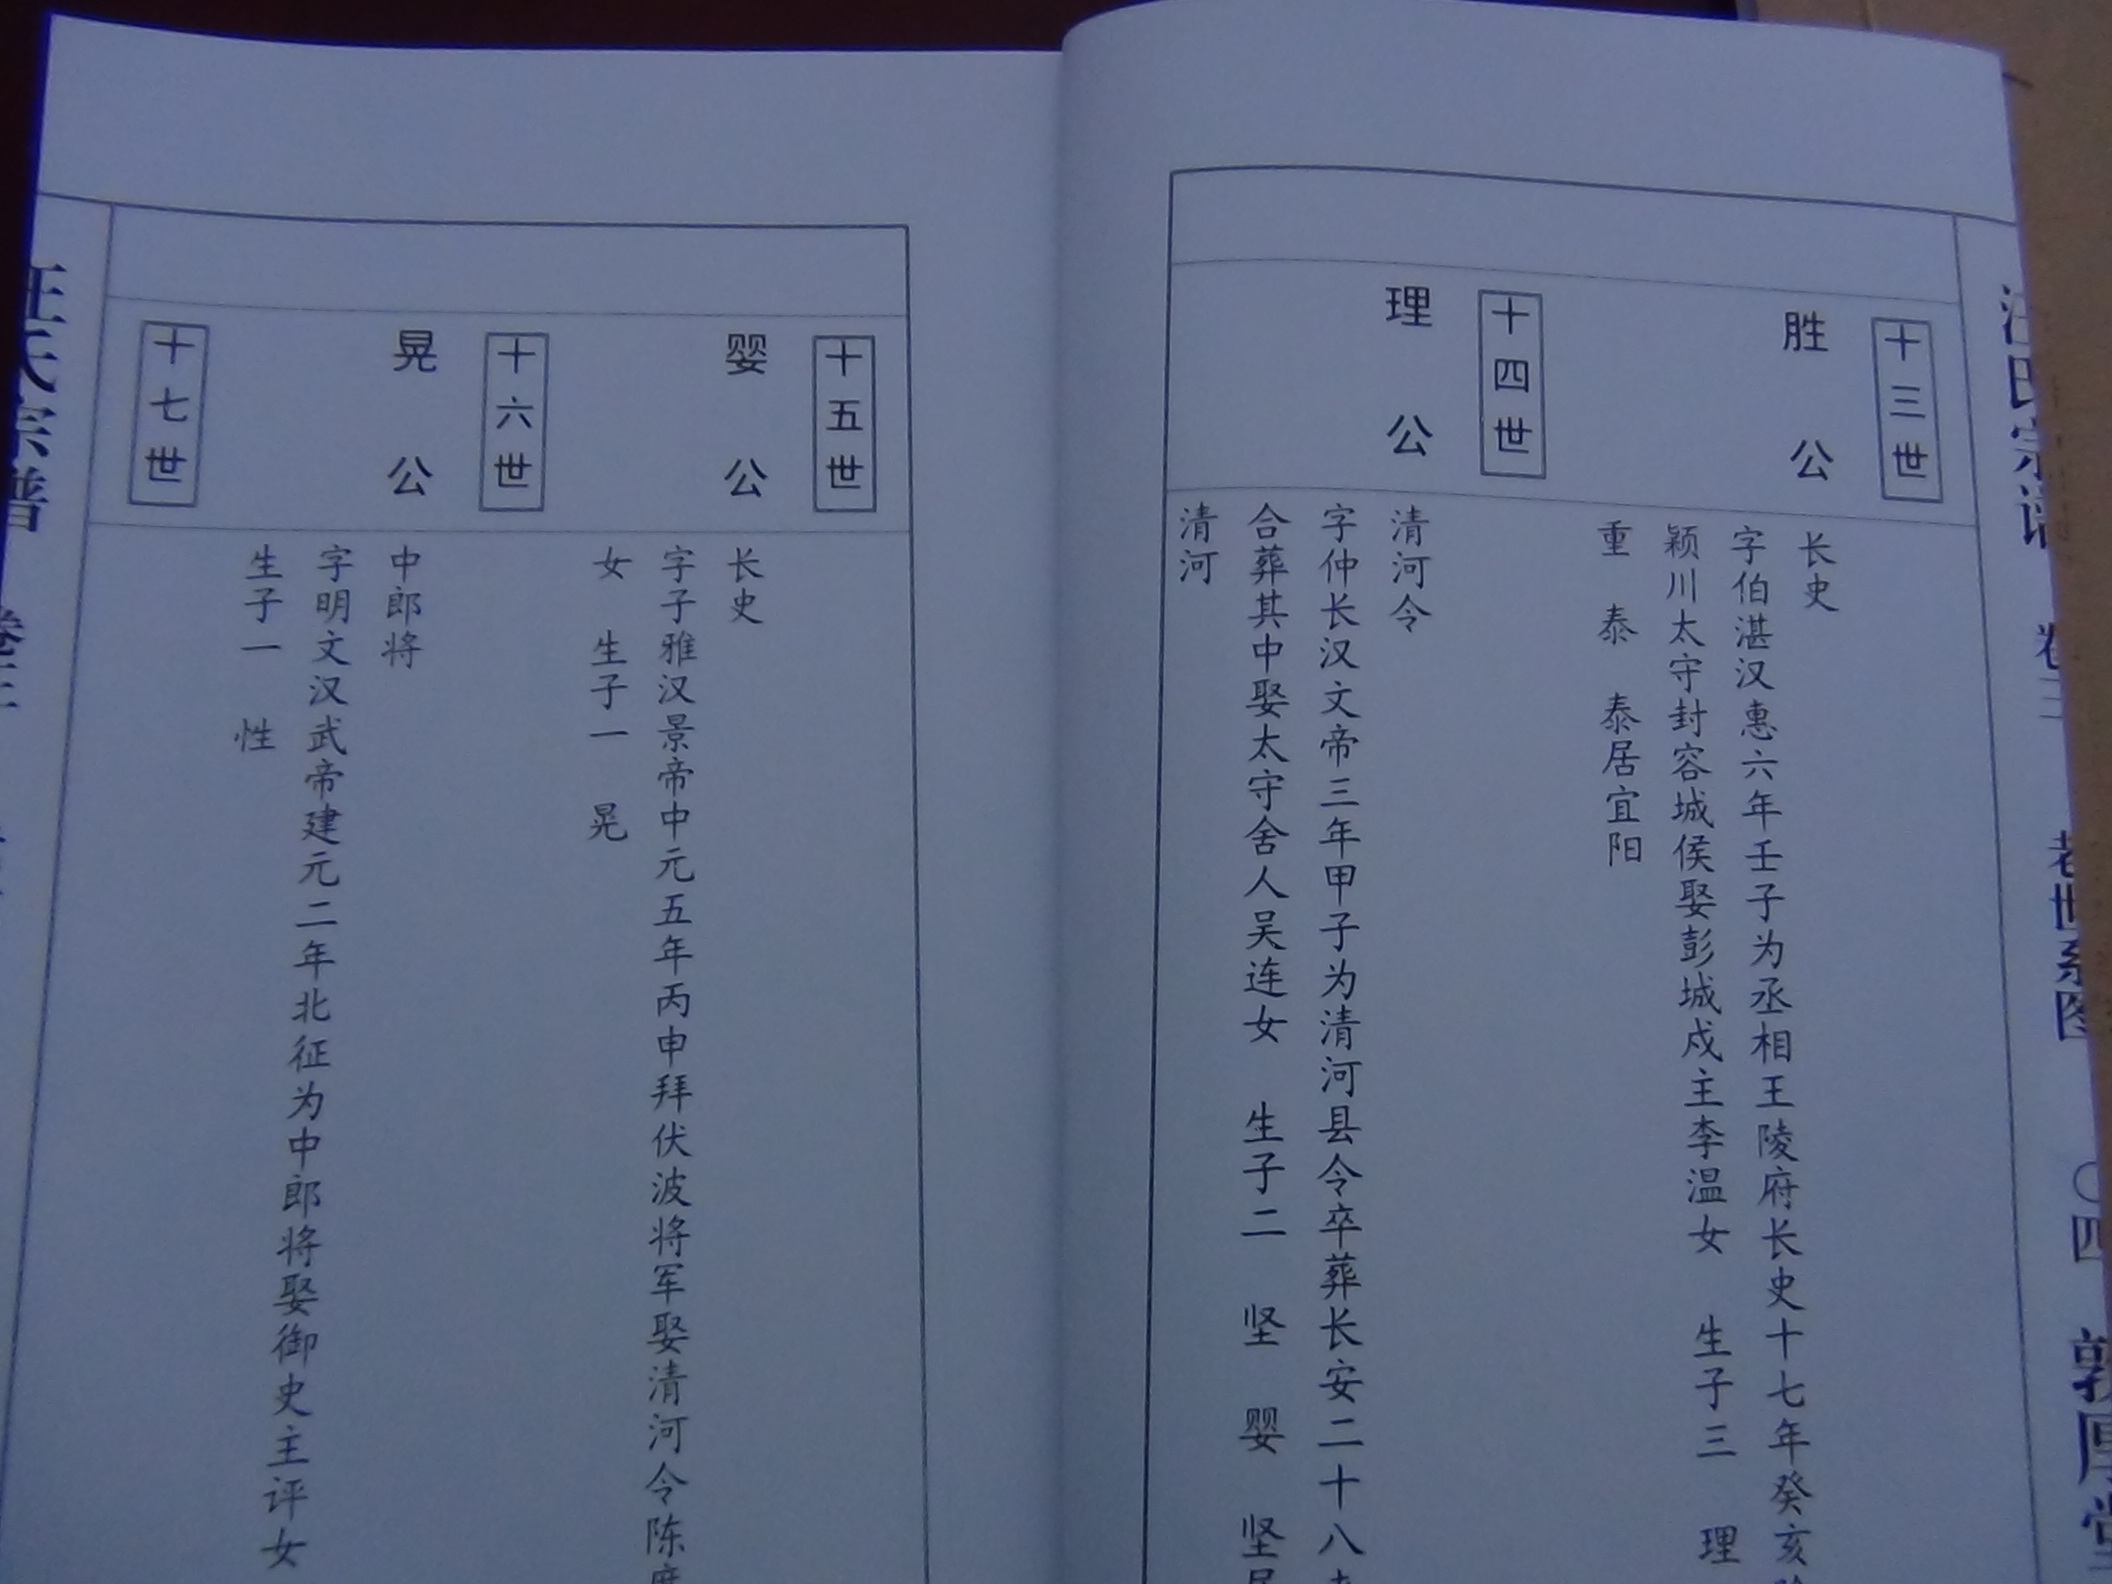 汪氏宗谱 卷三 老世系图 〇四 敦厚堂
十三世
胜公
长史
字伯湛汉惠六年壬子为丞相王陵府长史十七年癸亥
颍川太守封容城侯娶彭城戍主李温女 生子三 理
重 泰 泰居宜阳
十四世
理公
清河令
字仲长汉文帝三年甲子为清河县令卒葬长安二十八
合葬其中娶太守舍人吴连女 生子二 坚 婴 坚居
清河
十五世
婴公
长史
字子雅汉景帝中元五年丙申拜伏波将军娶清河令陈
女 生子一 晃
十六世
晃公
中郎将
字明文汉武帝建元二年北征为中郎将娶御史主评女
生子一 性
十七世
汪氏宗谱 卷三